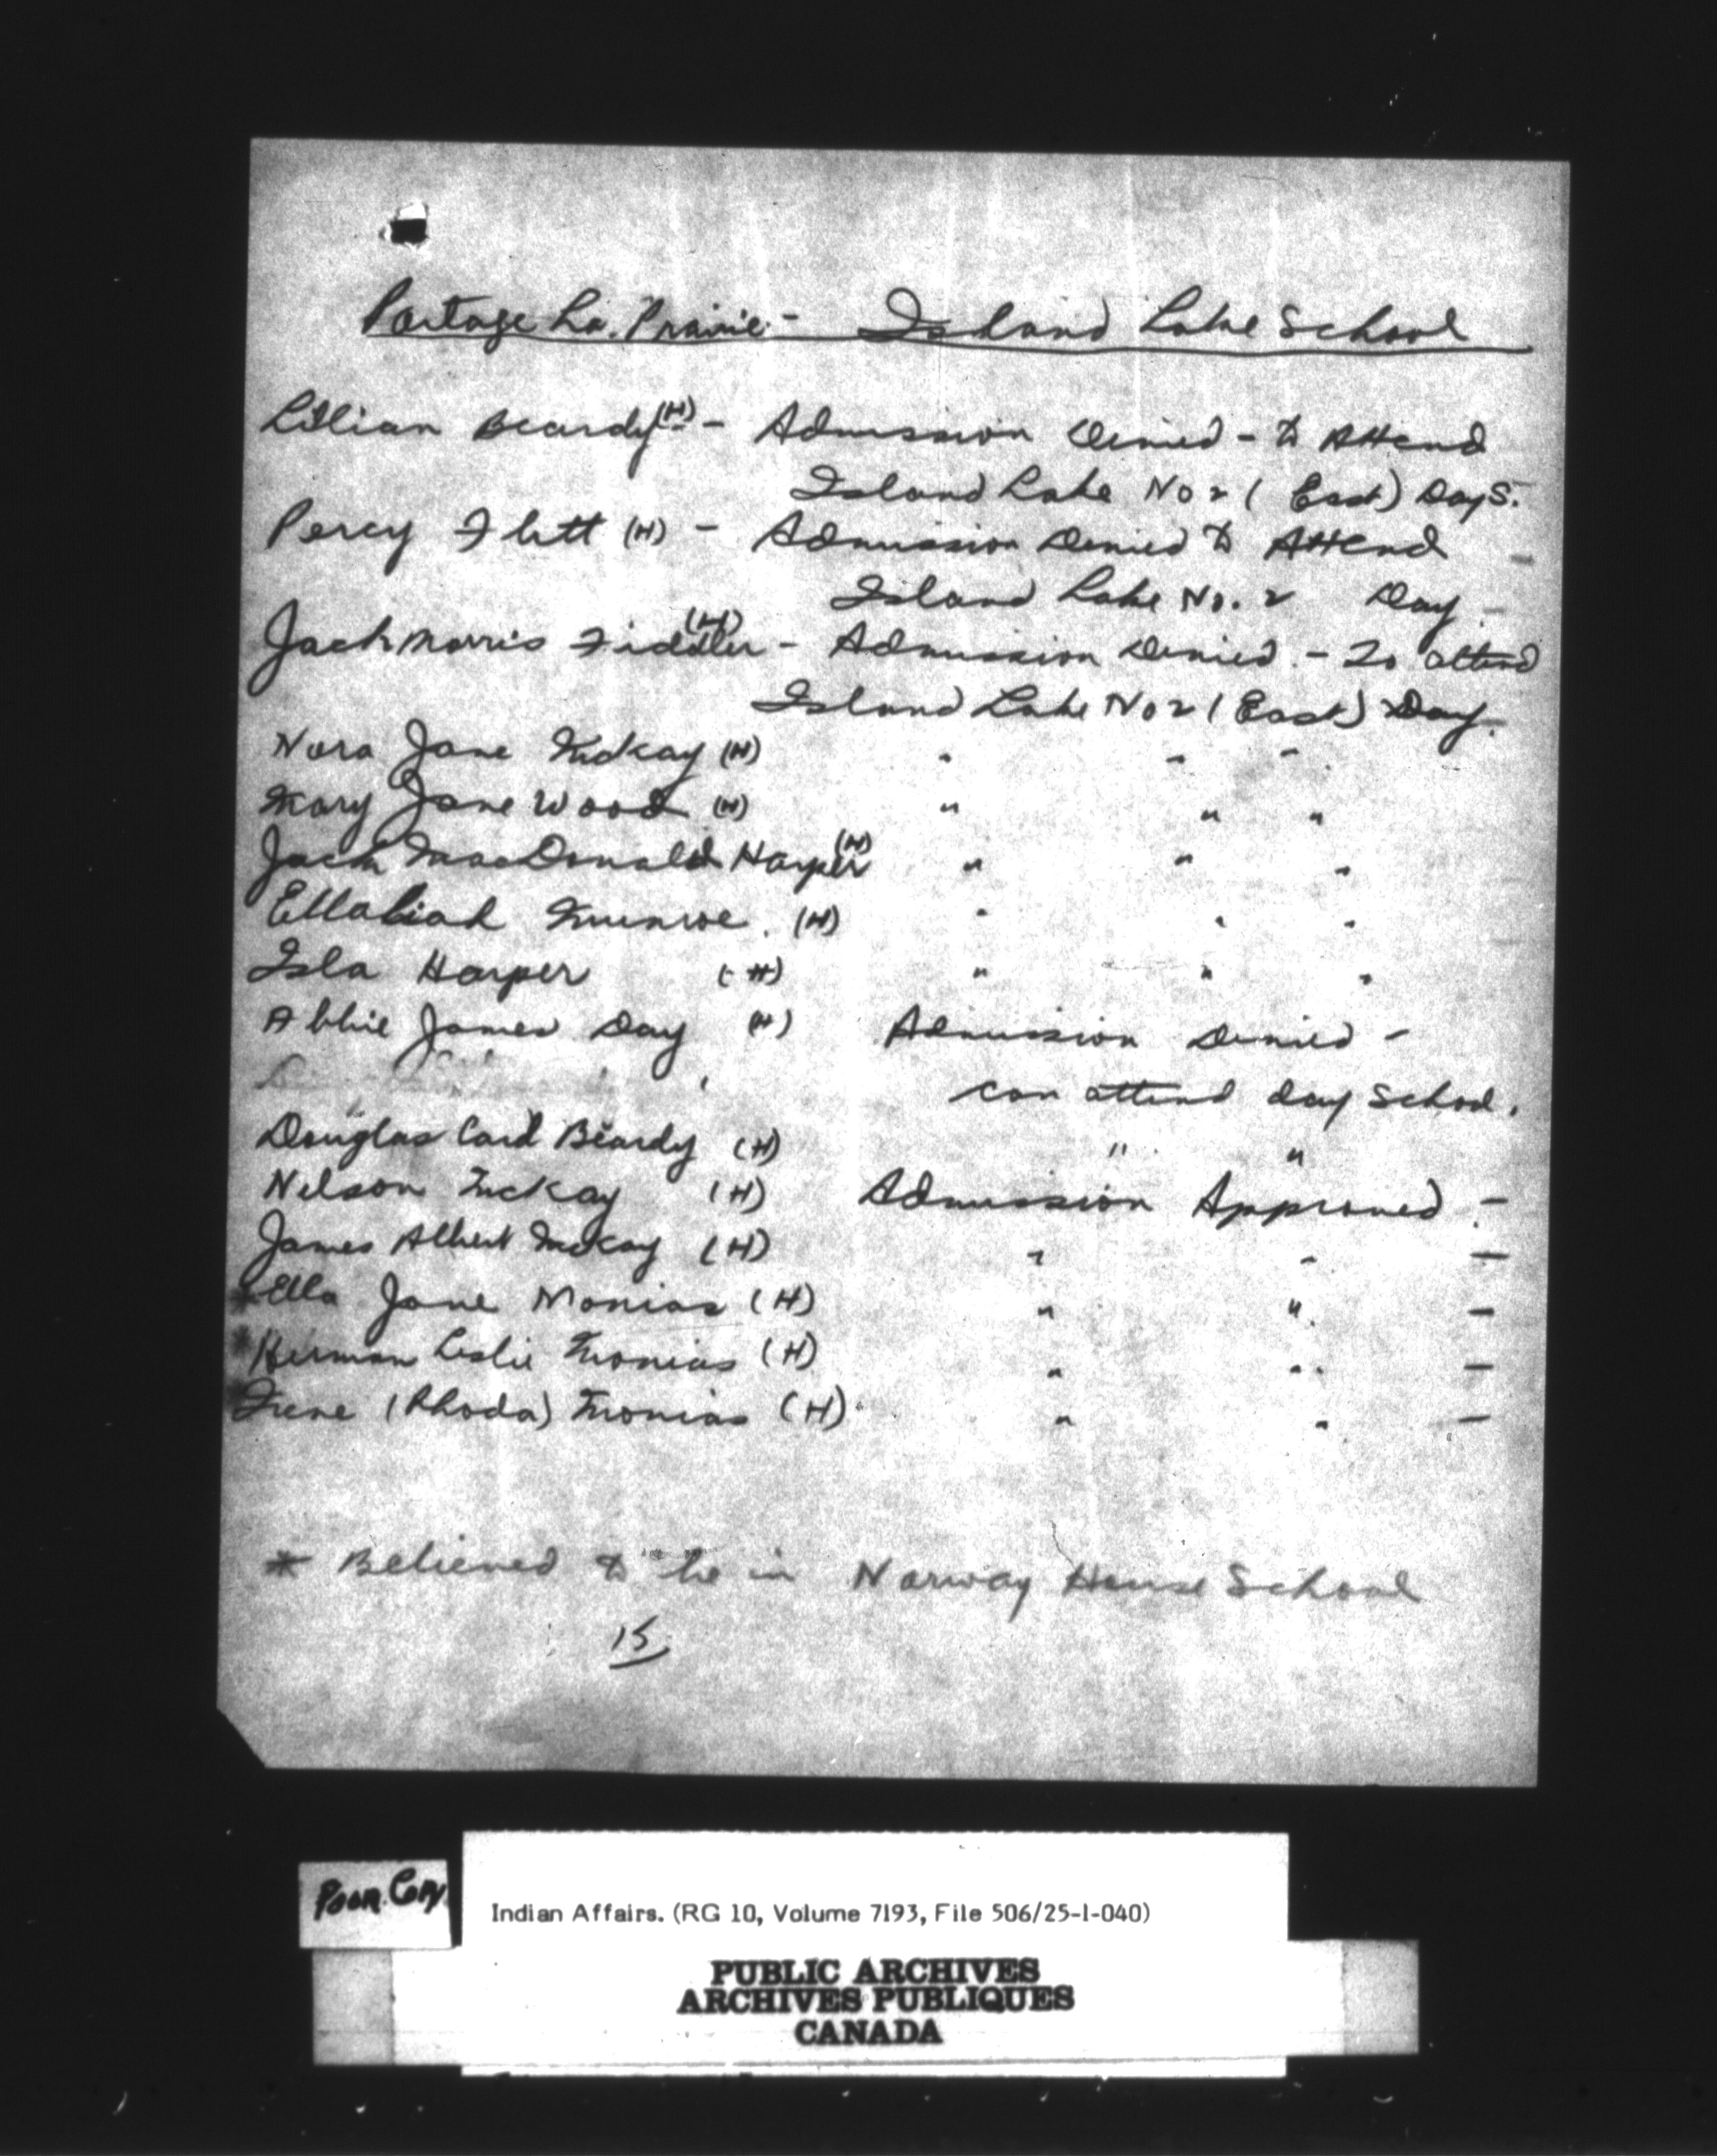 Portage La. Prairie - Island Lake School
Lillian Beardy (H) - Admission Denied - to Attend
Island Lake No 2 (East) Day S.
Percy Flett (H) - Admission Denied to Attend
Island Lake No. 2 Day
Jack Morris Fiddler (H) - Admission Denied - To attend
Island Lake No 2 (East) Day.
Nora Jane McKay (H) " " "
Mary Jane Wood (H) " " "
Jack MacDonald Harper (H) " " "
Ella Munroe. (H) " " "
Isla Harper (H) " " "
Abbie James Day (H) Admission Denied -
can attend day School.
Douglas Beardy (H) " "
Nelson McKay (H) Admission Approved -
James Albert McKay (H) " " -
* Ella Jane Monias (H) " " -
* Herman Leslie Monias (H) " " -
* Irene (Rhoda) Monias (H) " " -
* Believed to be in Norway House School
15
Poor Copy
Indian Affairs. (RG 10, Volume 7193, File 506/25-1-040)
PUBLIC ARCHIVES
ARCHIVES PUBLIQUES
CANADA